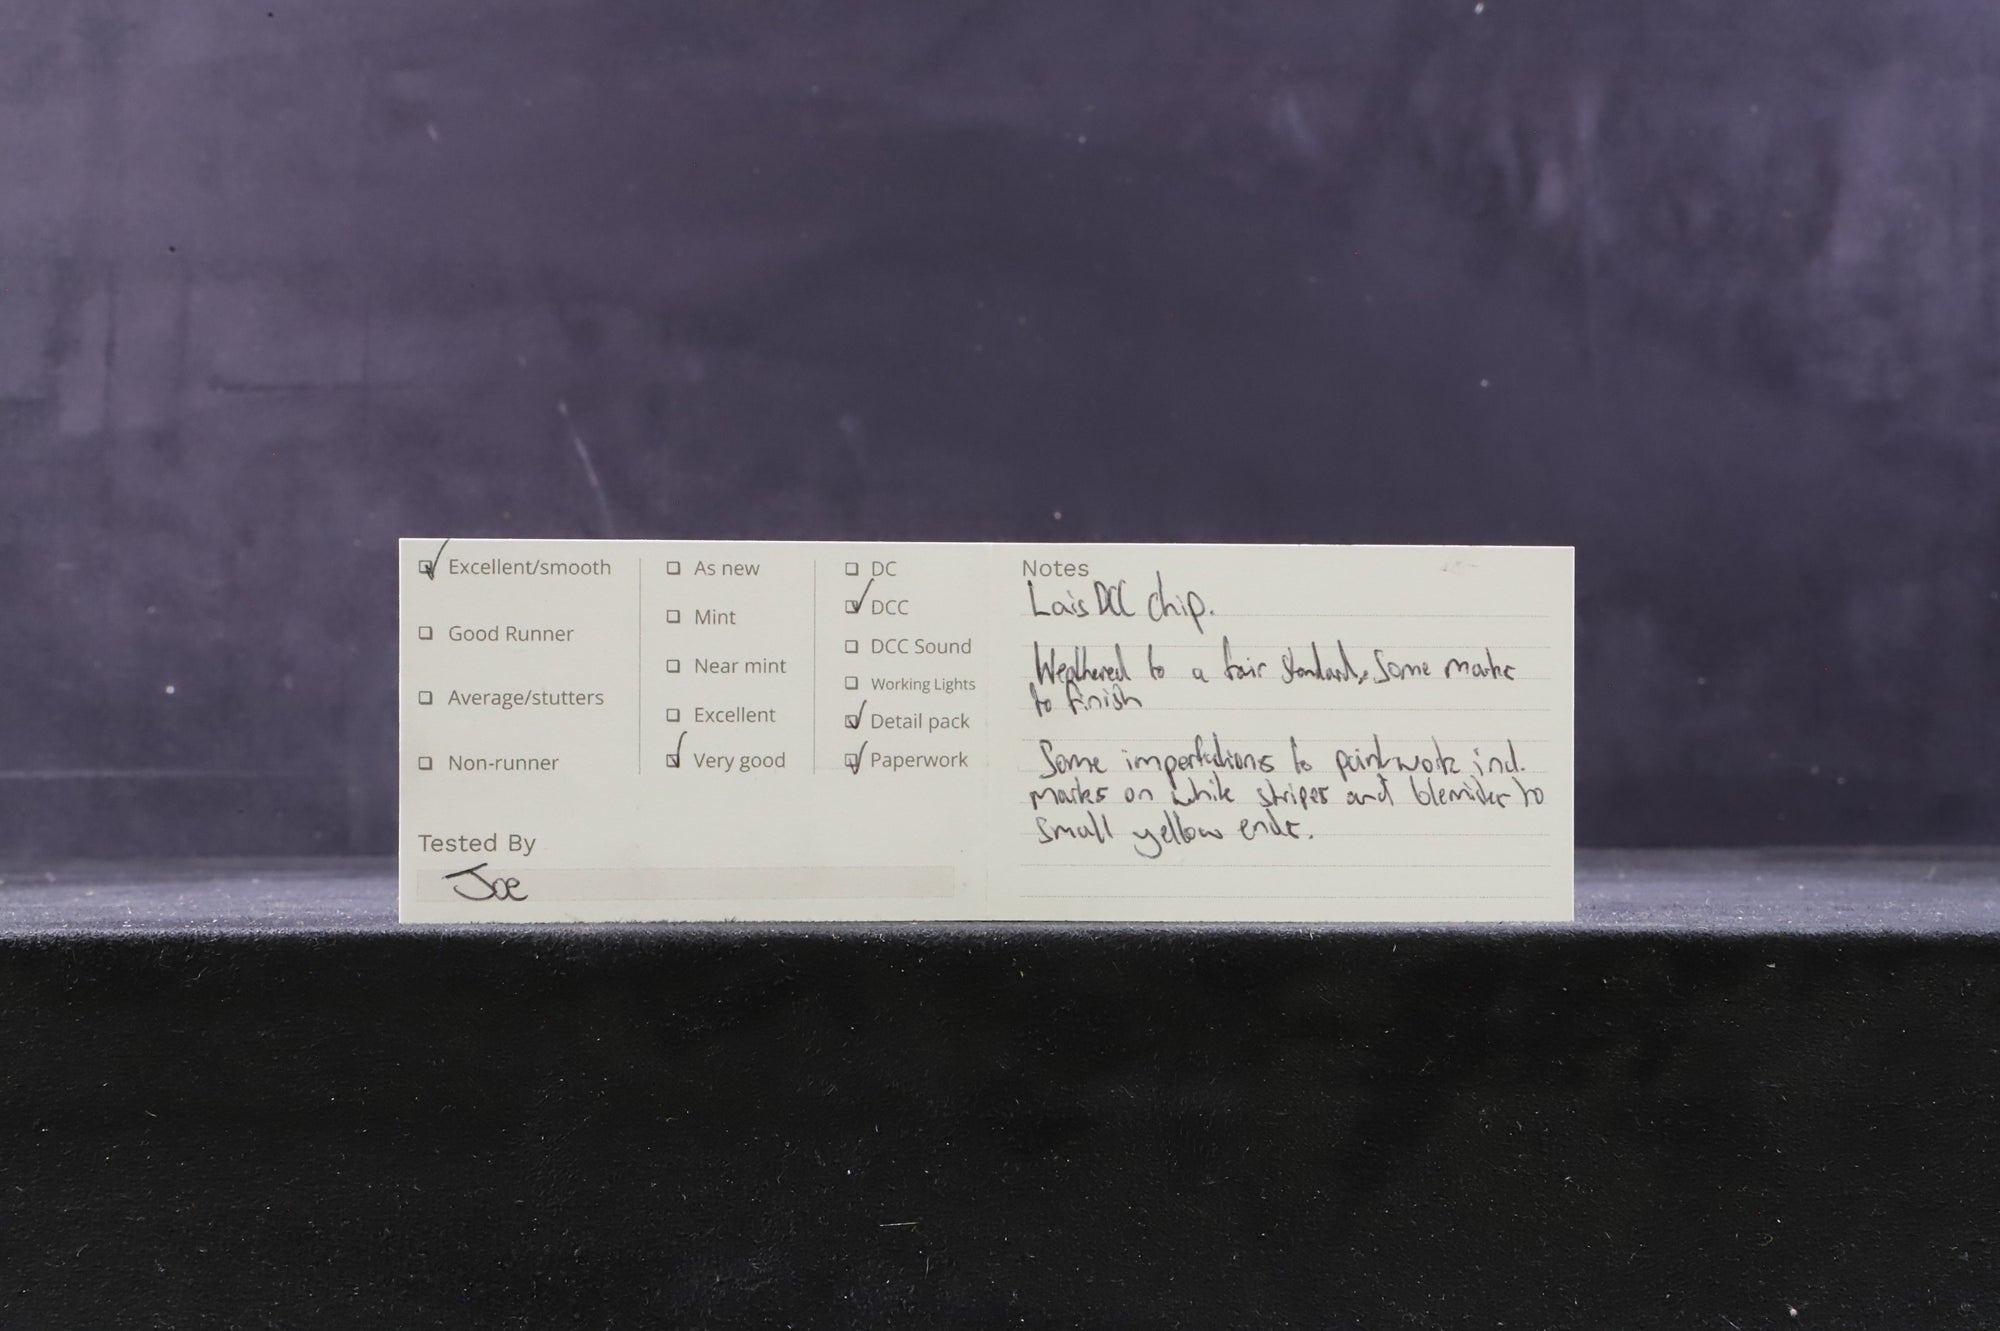 Excellent/smooth
Good Runner
Average/stutters
Non-runner
As new
Mint
Near mint
Excellent
Very good
DC
DCC
DCC Sound
Working Lights
Detail pack
Paperwork
Tested By
Joe
Notes
Lais DCC chip.
Weathered to a fair standard, some marks
to finish
Some imperfections to paintwork incl.
marks on white stripes and blemishes to
small yellow ends.